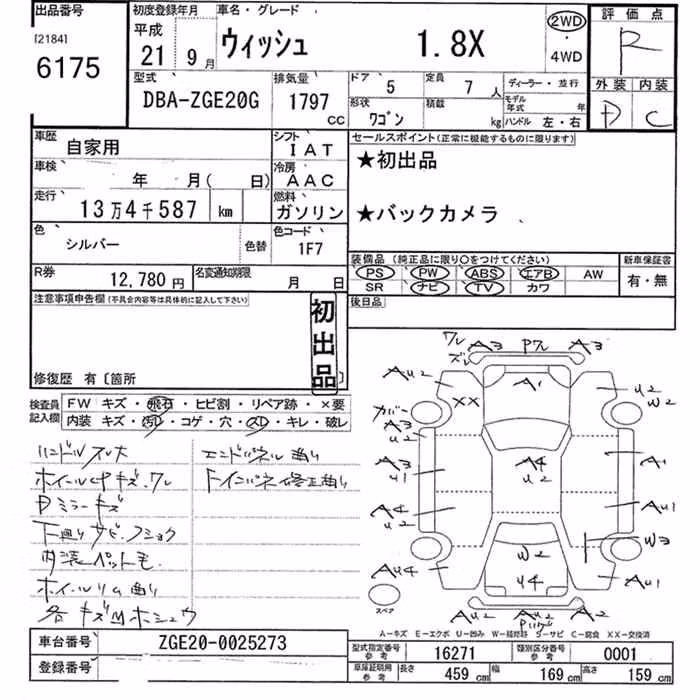 出品番号
[2184]
6175
初度登録年月
平成
21年 9月
車名・グレード
ウィッシュ 1.8X
2WD
・
4WD
評価点
R
外装 内装
D C
型式
DBA-ZGE20G
排気量
1797 cc
ドア 5
定員 7人
ディーラー・並行
形状 ワゴン
積載 kg
モデル年式 年
ハンドル 左・右
車歴 自家用
シフト IAT
セールスポイント(正常に機能するものに限ります)
★初出品
★バックカメラ
車検 年 月( 日)
冷房 AAC
走行 13万4千587 km
燃料 ガソリン
色 シルバー 色替
色コード 1F7
装備品 (純正品に限り○をつけてください)
新車保証書
PS PW ABS エアB AW
SR ナビ TV カワ
有・無
R券 12,780円
名変通知期限 月 日
後日品
注意事項申告欄(不具合内容等は具体的に記入して下さい)
初出品
修復歴 有〔箇所 〕
検査員記入欄
FW キズ・飛石・ヒビ割・リペア跡・×要
内装 キズ・汚レ・コゲ・穴・スレ・キレ・破レ
ハンドルスレ大
ホイールCPキズ、ワレ
Dミラーキズ
下廻りサビ、フショク
内装ペット毛
ホイールリム曲り
各キズMホシュウ
エンドパネル曲り
ワレ
ズレ
A3 Pワレ A3
AU2 A1 U2
XX W2
カバー
A3
U2
A3
U1
A4
U2
A1
A4
U2
AU1
W2 W3
AU4 U4 AU1
スペア
AU2 AU2 A2
A-キズ E-エクボ U-凹み W-補修跡 S-サビ C-腐食 XX-交換済
車台番号 ZGE20-0025273
登録番号
型式指定番号 参考 16271
類別区分番号 参考 0001
車庫証明用 参考 長さ 459cm 幅 169cm 高さ 159cm